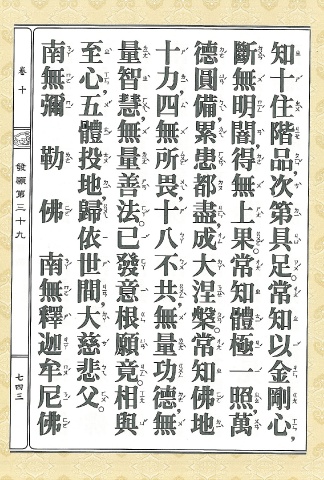 知十住階品，次第具足。常知以金剛心，
斷無明闇，得無上果。常知體極一照，萬
德圓備，累患都盡，成大涅槃。常知佛地
十力四無所畏，十八不共，無量功德，無
量智慧，無量善法。已發意根願竟，相與
至心，五體投地，歸依世間，大慈悲父。
南無彌勒佛　南無釋迦牟尼佛
卷十
發願第三十九
七四三